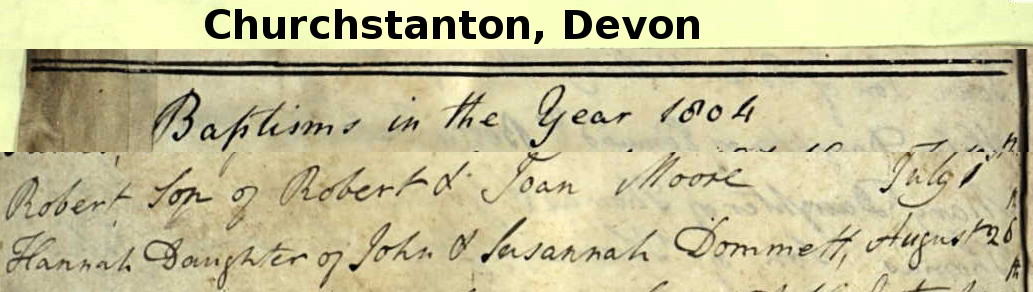 Churchstanton, Devon
Baptisms in the Year 1804
Robert Son of Robert & Joan Moore July 1st
Hannah Daughter of John & Susannah Dommett, August 26